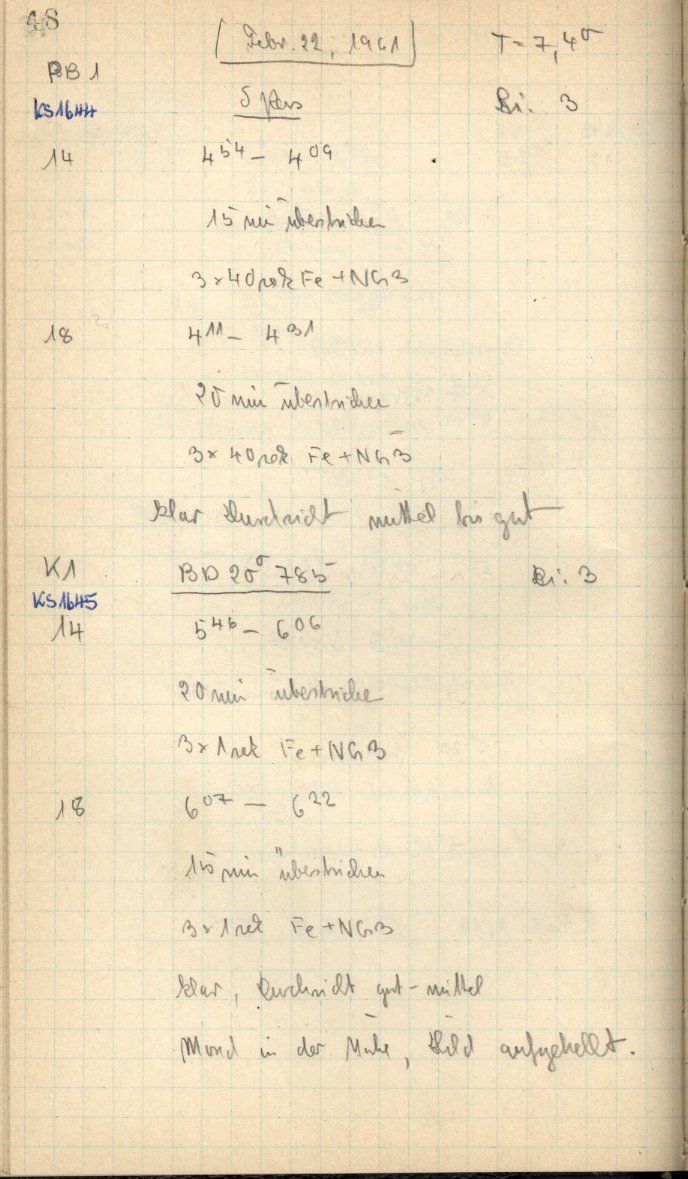 48
[Febr. 22, 1961] T = 7,4°
BB 1
KS1644 δ Pers Bi. 3
14 4⁵⁴ – 4⁰⁹
15 min überstrichen
3 × 40 sek Fe + NG3
18 4¹¹ – 4³¹
20 min überstrichen
3 × 40 sek Fe + NG3
klar Durchsicht mittel bis gut
K1 BD 20° 785 Bi. 3
KS1645
14 5⁴⁶ – 6⁰⁶
20 min überstrichen
3 × 1 sek Fe + NG3
18 6⁰⁷ – 6²²
15 min überstrichen
3 × 1 sek Fe + NG3
klar, Durchsicht gut – mittel
Mond in der Nähe, Bild aufgehellt.